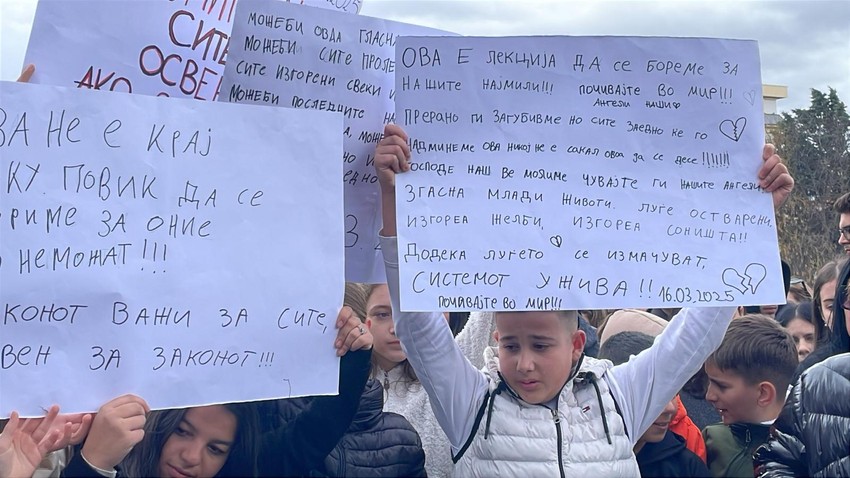 СИТЕ
ОСВЕ
АКО
2025
МОЖЕБИ ОВАА ГЛАСНА
МОЖЕБИ СИТЕ ПРОЛЕ
СИТЕ ИЗГОРЕНИ СВЕЌИ И
МОЖЕБИ ПОСЛЕДНИТЕ
ОВА Е ЛЕКЦИЈА ДА СЕ БОРЕМЕ ЗА
НАШИТЕ НАЈМИЛИ!!! ПОЧИВАЈТЕ ВО МИР!!!
АНГЕЛИ НАШИ
ПРЕРАНО ГИ ЗАГУБИВМЕ НО СИТЕ ЗАЕДНО НЕ ГО
НАДМИНЕМЕ ОВА НИКОЈ НЕ Е САКАЛ ОВОА ДА СЕ ДЕСЕ!!!!!!!
ГОСПОДЕ НАШ ВЕ МОЛИМЕ ЧУВАЈТЕ ГИ НАШИТЕ АНГЕЛИ
ЗГАСНА МЛАДИ ЖИВОТИ, ЛУЃЕ ОСТВАРЕНИ,
ИЗГОРЕА ЖЕЛБИ, ИЗГОРЕА СОНИШТА!!
ДОДЕКА ЛУЃЕТО СЕ ИЗМАЧУВАТ,
СИСТЕМОТ УЖИВА!! 16.03.2025
ПОЧИВАЈТЕ ВО МИР!!!
ВА НЕ Е КРАЈ
КУ ПОВИК ДА СЕ
ОРИМЕ ЗА ОНИЕ
О НЕМОЖАТ!!!
КОНОТ ВАЖИ ЗА СИТЕ,
ВЕН ЗА ЗАКОНОТ!!!